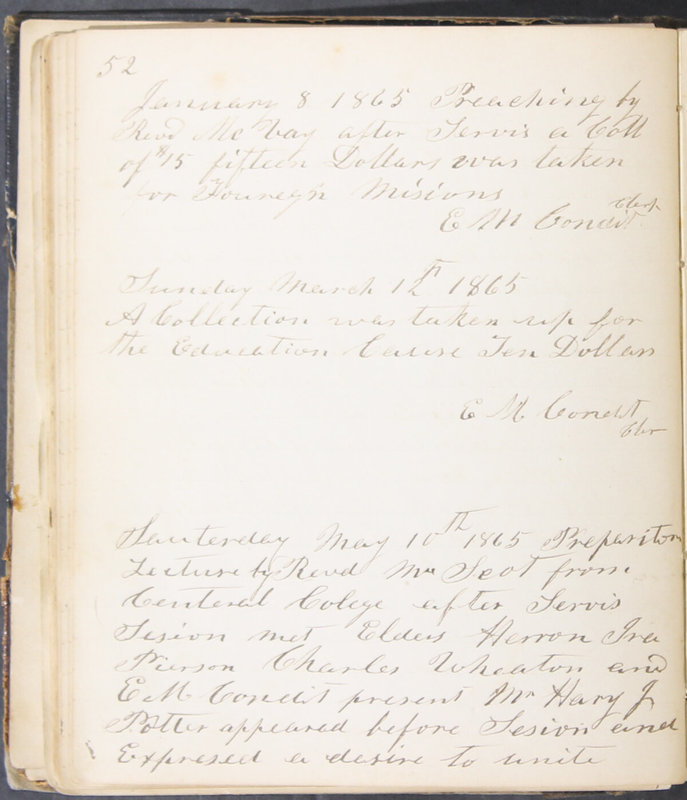 52
January 8 1865 Preaching by
Revd McVay after Servis a Coll
of $15 fifteen Dollars was taken
for Foureg'n Misions
E M Condit Clerk
Sunday March 12th 1865
A Collection was taken up for
the Education Cause Ten Dollars
E M Condit
Cler
Sauterday May 10th 1865 Preparitory
Lecture by Revd Mr Scot from
Centeral Colege after Servis
Sesion met Elders Herron Ira
Pierson Charles Wheaton and
E M Condit present Mr Hary J
Potter appeared before Sesion and
Expresed a desire to unite